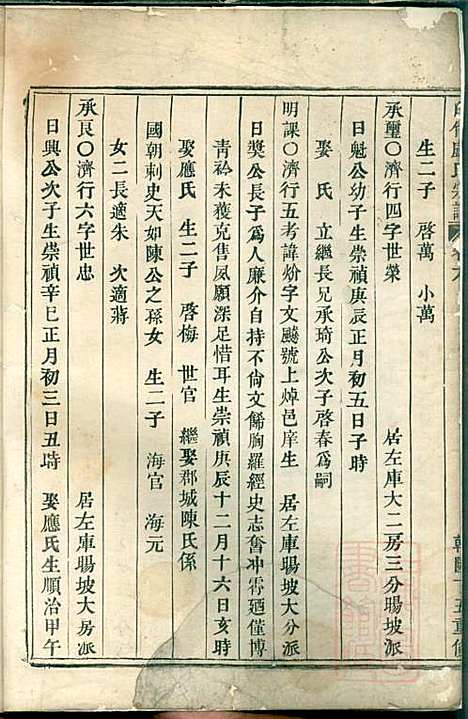 生二子 啓萬 小萬
承璽○濟行四字世榮 居左庫大二房三分暘坡派
日魁公幼子生崇禎庚辰正月初五日子時
娶 氏 立繼長兄承琦公次子啓春爲嗣
明課○濟行五考諱炌字文颺號上焯邑庠生 居左庫暘坡大分派
日奬公長子爲人廉介自持不尙文餙胸羅經史志奮冲霄廼僅博
青衿未獲克售夙願深足惜耳生崇禎庚辰十二月十六日亥時
娶應氏 生二子 啓梅 世官 繼娶郡城陳氏係
國朝刺史天如陳公之孫女 生二子 海官 海元
女二長適朱 次適蔣
承良○濟行六字世忠 居左庫暘坡大房派
日興公次子生崇禎辛巳正月初三日丑時 娶應氏生順治甲午